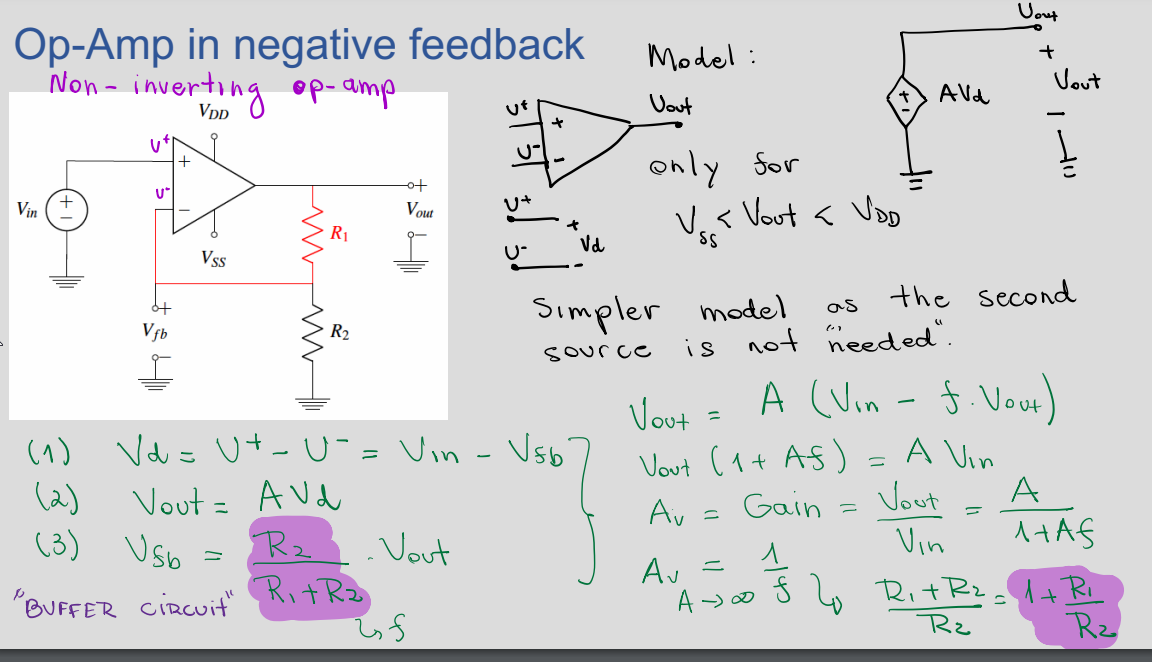 Op-Amp in negative feedback
Non-inverting op-amp
VDD
U+
+
U-
−
Vin
+
−
VSS
R1
+
Vout
−
+
Vfb
−
R2
Model:
U+
+
U-
−
Vout
U+
+
Vd
U-
−
only for
Vss < Vout < VDD
Vout
+
AVd
+
−
Vout
−
Simpler model as the second
source is not "needed".
(1) Vd = U+ - U- = Vin - Vfb
(2) Vout = AVd
(3) Vfb = R2 / (R1+R2) . Vout
↳ f
"BUFFER CIRCUIT"
Vout = A (Vin - f.Vout)
Vout (1+Af) = A Vin
Av = Gain = Vout / Vin = A / (1+Af)
Av = 1 / f
A→∞
↳ (R1+R2) / R2 = 1 + R1 / R2